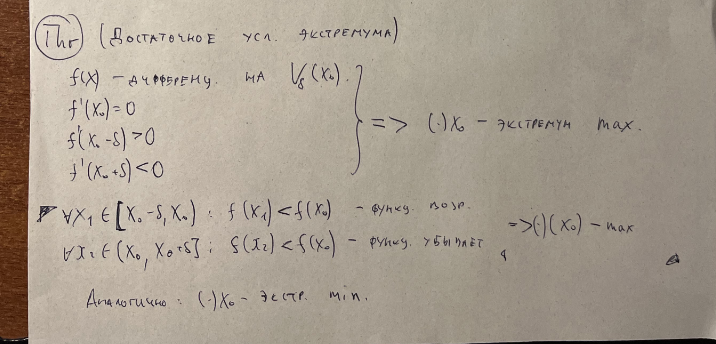 Thr (Достаточное усл. экстремума)
f(x) – дифференц. на Vδ(x₀).
f'(x₀)=0
f'(x₀-δ)>0
f'(x₀+δ)<0
=> (·)x₀ – экстремум max.
∀x₁∈[x₀-δ, x₀): f(x₁)<f(x₀) – функц. возр.
∀x₂∈(x₀, x₀+δ]; f(x₂)<f(x₀) – функц. убывает
=>(·)(x₀) – max
Аналогично: (·)x₀ – экстр. min.